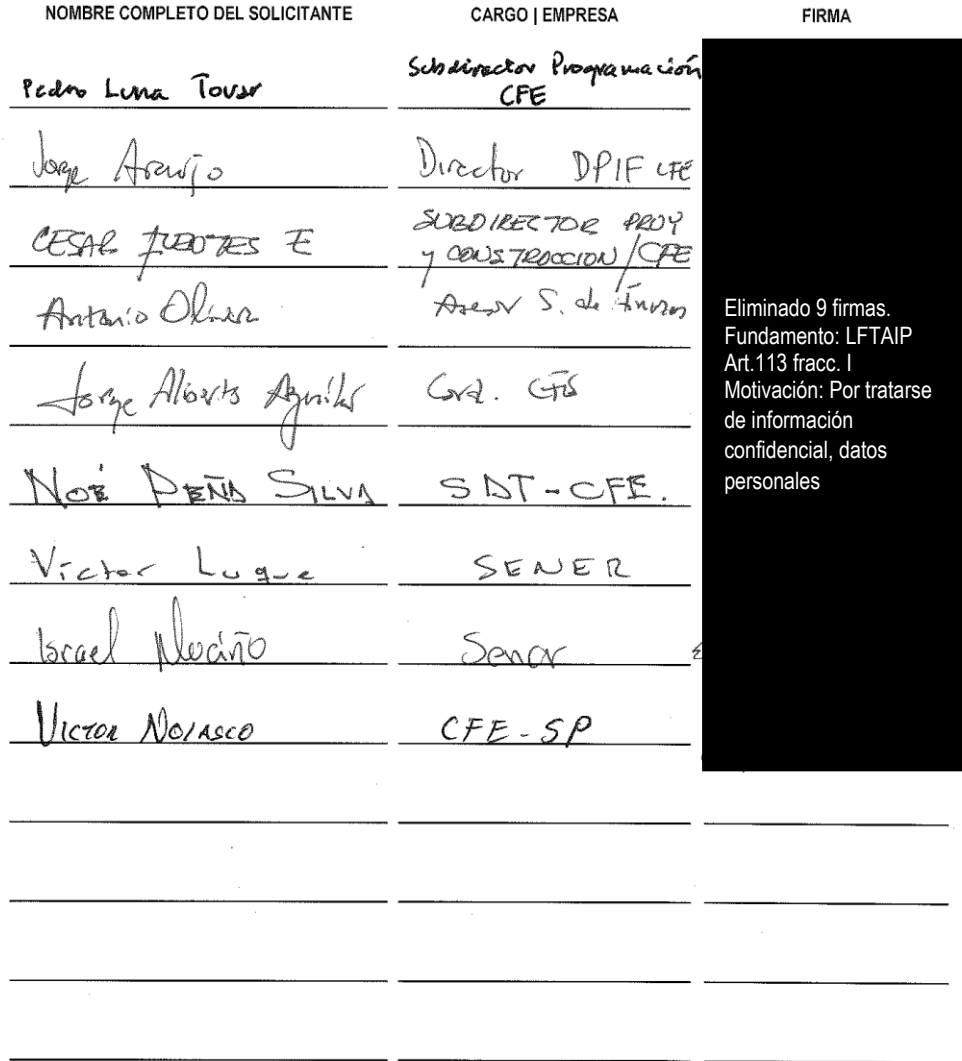 NOMBRE COMPLETO DEL SOLICITANTE CARGO | EMPRESA FIRMA
Pedro Luna Tovar Subdirector Programación
CFE
Jorge Araujo Director DPIF CFE
CESAR FUENTES E SUBDIRECTOR PROY
y CONSTRUCCION / CFE
Antonio Asesor S. de
Jorge Alberto Aguilar Cord.
NOÉ PEÑA SILVA SDT-CFE.
Victor Luque SENER
Israel Mociño Sener
VICTOR NOLASCO CFE-SP
Eliminado 9 firmas.
Fundamento: LFTAIP
Art.113 fracc. I
Motivación: Por tratarse
de información
confidencial, datos
personales